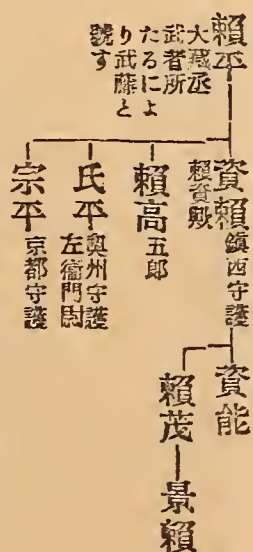 賴平
大藏丞
武者所
たるによ
り武藤と
號す
資賴
鎮西守護
賴資歟
賴高
五郎
氏平
奧州守護
左衞門尉
宗平
京都守護
資能
賴茂
景賴